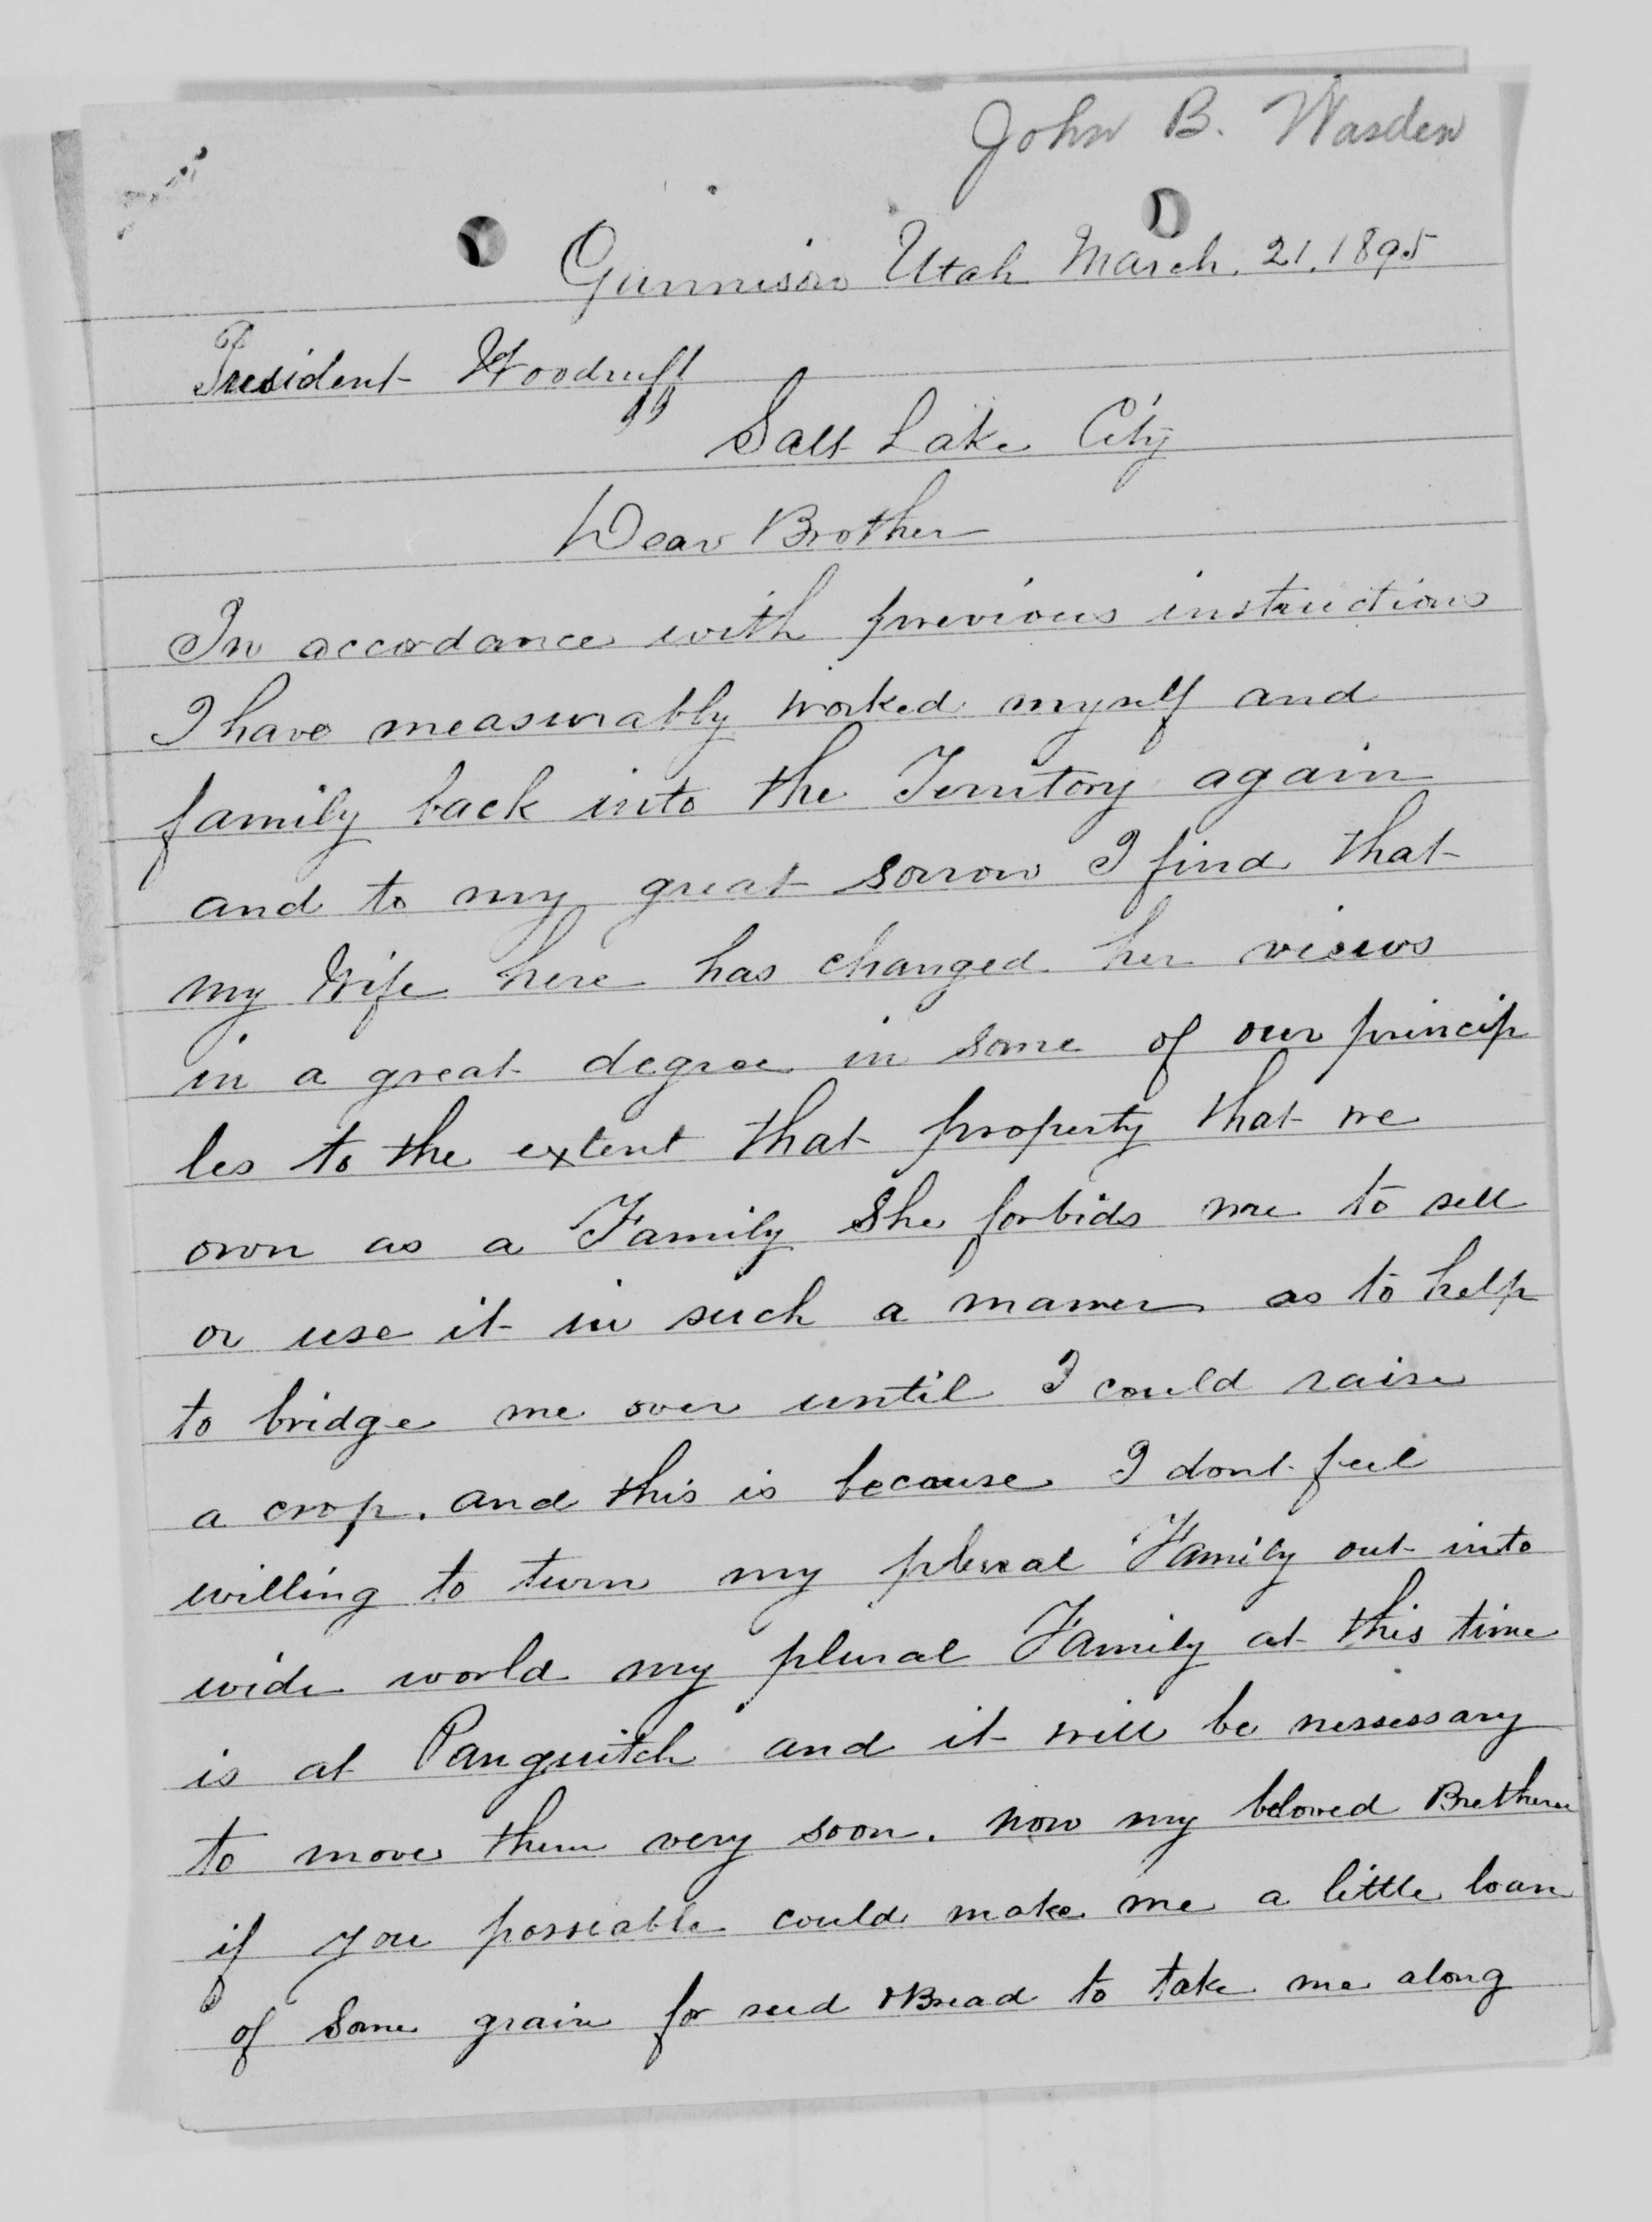 John B. Wasden
Gunnison Utah March. 21. 1895
President Woodruff
Salt Lake City
Dear Brother
In accordance with previous instructions
I have measurably worked myself and
family back into the Territory again
and to my great sorrow I find that
my Wife here has changed her views
in a great degree in some of our princip
les to the extent that property that we
own as a Family She forbids me to sell
or use it in such a manner as to help
to bridge me over until I could raise
a crop. and this is because I dont feel
willing to turn my plural Family out into
wide world my plural Family at this time
is at Panguitch and it will be nessessary
to move them very soon. now my beloved Bretheren
if you possiable could make me a little loan
of Some grain for seed & Bread to take me along